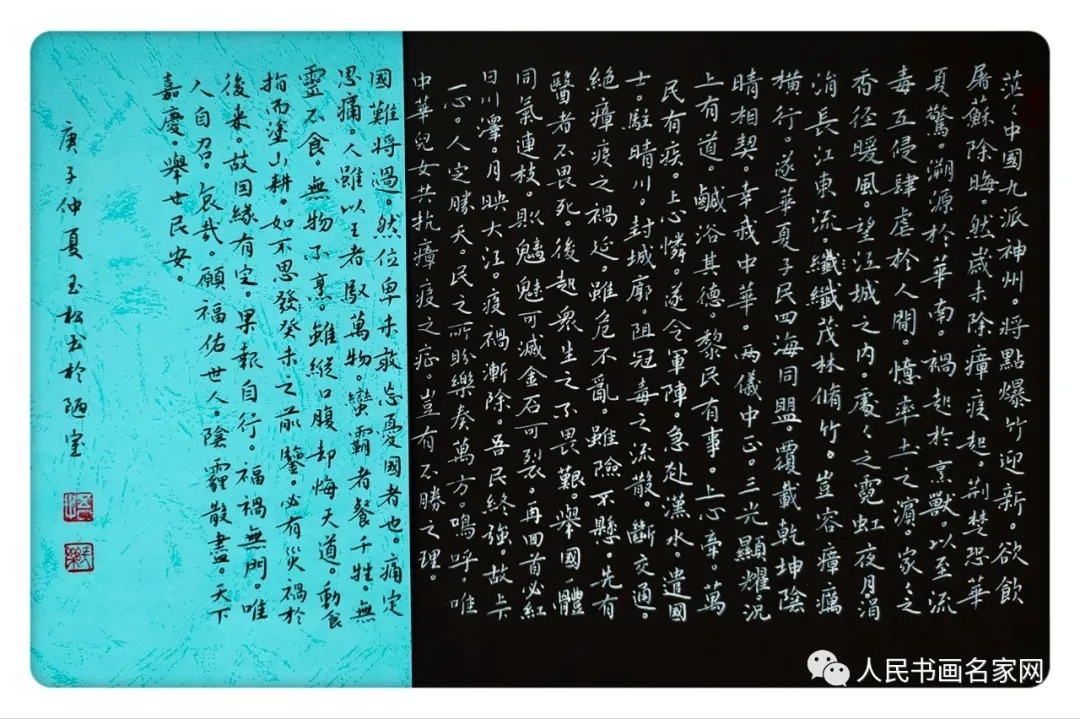 茫々中國九派神州。將點爆竹迎新。欲飲
屠蘇除晦。然歲未除瘴疫起。荆楚恐華
夏驚。溯源於華南。禍起於烹獸。以至流
毒互侵肆虐於人間。憶率土之濱。家々之
香径暖風。望江城之内。處々之霓虹夜月。涓
涓長江東流。纖纖茂林脩竹。豈容瘴癘
橫行。遂華夏子民四海同盟。覆載乾坤陰
晴相契。幸我中華。两儀中正。三光顯耀。况
上有道。鹹浴其德。黎民有事。上心牽。萬
民有疾。上心憐。遂令軍陣。急赴漢水。遣國
士。駐晴川。封城廓。阻冠毒之流散。斷交通。
絕瘴疫之禍延。雖危不亂。雖險不懸。先有
醫者不畏死。後起衆生之不畏艱。舉國一體
同氣連枝。則魑魅可滅金石可裂。再回首必紅
日川澤。月映大江。疫禍漸除。吾民終強。故上下
一心。人定勝天。民之所盼樂奏萬方。嗚呼。唯
中華兒女共抗瘴疫之症。豈有不勝之理。
國難將過。然位卑未敢忘憂國者也。痛定
思痛。人雖以王者馭萬物。蠻霸者餐千牲。無
靈不食。無物不烹。雖縱口腹却悔天道。動食
指而塗山耕。如不思發癸未之前鑒。必有災禍於
後来。故因緣有定。果報自行。福禍無門。唯
人自召。哀哉。願福佑世人。陰霾散盡。天下
嘉慶。舉世民安。
庚子仲夏玉松书於陋室
人民书画名家网